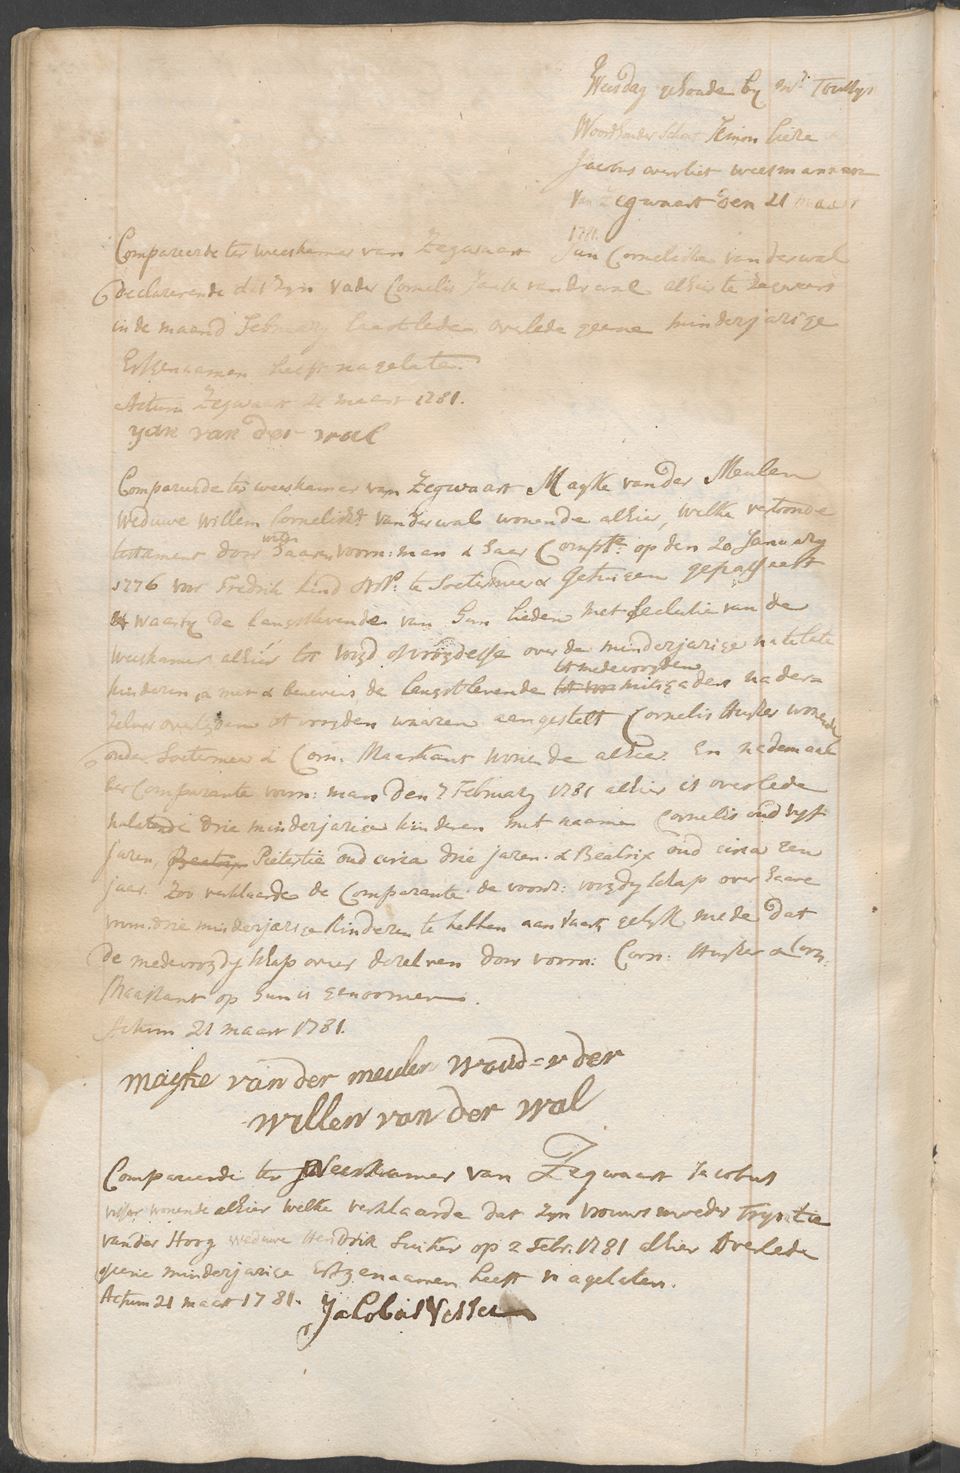 Weesdag gehoude by mr
Schout Simon
Jacobus overvliet weesmannen
van Zegwaart den 21 maart
1781.
Compareerde ter weeskamer van Zegwaart Jan Cornelisse van der wal
Declareerende dat Zyn vader Cornelis Janse van der wal alhier te Zegwaert
in de maand February laastleden overlede geene minderjarige
Erfgenaamen heeft nagelate.
Actum Zegwaart 21 maart 1781.
yan van der wal
Compareerde ter weeskamer van Zegwaart Mayke van der Meulen
Weduwe Willem Cornelisz. van der wal wonende alhier, welke vertoonde
testament door wylen haaren voorn: man & haar Compte. op den 20 January
1776 voor Fredrik Nots. te Soetermeer & Getuigen gepasseert
waarby de langstlevende van hun lieden met seclusie van de
weeskamer alhier tot voogd of voogdesse over de minderjarige natelate
kinderen, & met & benevens de langstlevende tot medevoogden mitsgaders na der=
zelver overlyden tot voogden waaren aengestelt Cornelis Huyser wonende
onder Soetermeer & Corn. Maaskant wonende alhier. En nademaal
der Comparante voorn: man den 7 February 1781 alhier is overlede
nalatende drie minderjarige kinderen met naame Cornelis oud vyf
jaren, Pietertie oud circa drie jaren. & Beatrix oud circa een
jaar. Zoo verklaarde de Comparante de voorsz: voogdyschap over haare
voorn. drie minderjarige kinderen te hebben aanvaart, gelyk mede dat
de medevoogdyschap over dezelven door voorn: Corn: Huyser & Corn:
Maaskant op hun is genoomen.
Actum 21 maart 1781.
mayke van der meulen
willem van der wal
Compareerde ter Weeskamer van Zegwaart Jacobus
visser wonende alhier welke verklaarde dat Zyn vrouws moeder Tryntie
van der Hoog weduwe Hendrik Suiker op 2 Febr. 1781 alhier Overlede
geene minderjarige Erfgenaamen heeft nagelaten.
Actum 21 maart 1781.
Jacobus Visser